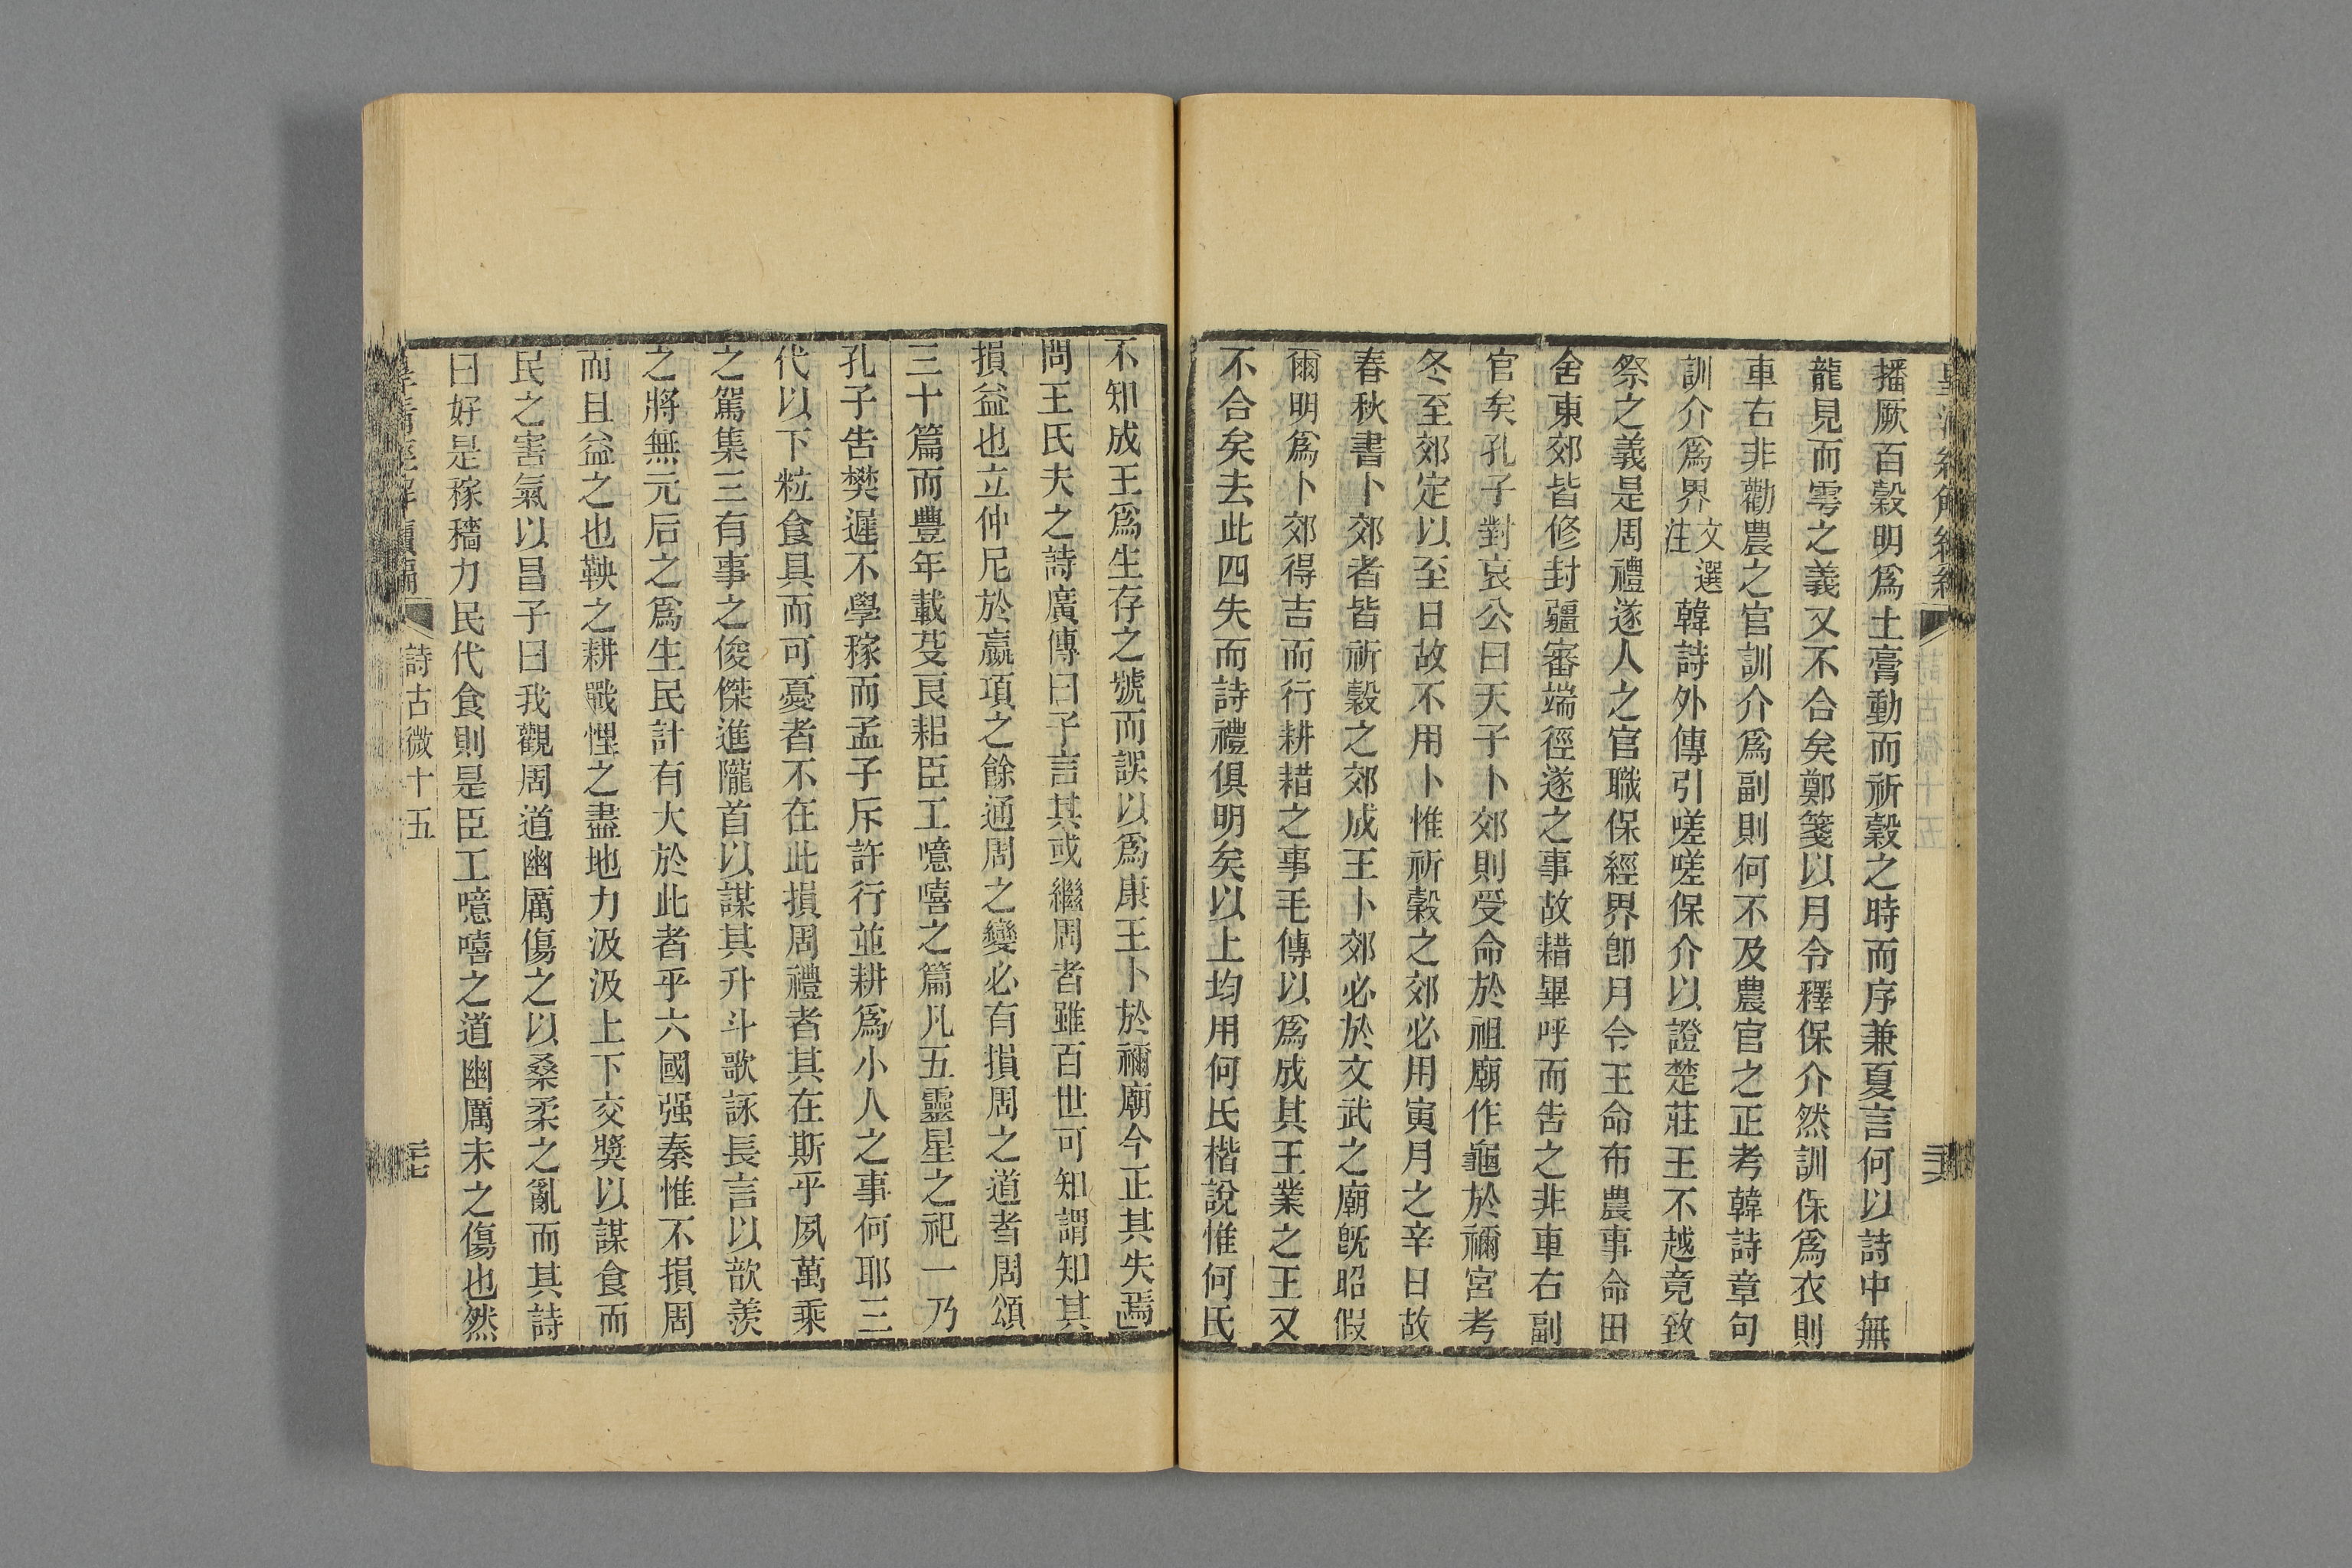 播厥百穀明爲土膏動而祈穀之時而序兼夏言何以詩中無
龍見而雩之義又不合矣鄭箋以月令釋保介然訓保爲衣則
車右非勸農之官訓介爲副則何不及農官之正考韓詩章句
訓介爲界文選注韓詩外傳引嗟嗟保介以證楚莊王不越竟致
祭之義是周禮遂人之官職保經界卽月令王命布農事命田
舍東郊皆修封疆審端徑遂之事故耤畢呼而告之非車右副
官矣孔子對哀公曰天子卜郊則受命於祖廟作龜於禰宮考
冬至郊定以至日故不用卜惟祈穀之郊必用寅月之辛日故
春秋書卜郊者皆祈穀之郊成王卜郊必於文武之廟旣昭假
爾明爲卜郊得吉而行耕耤之事毛傳以爲成其王業之王又
不合矣去此四失而詩禮俱明矣以上均用何氏楷說惟何氏
不知成王爲生存之號而誤以爲康王卜於禰廟今正其失焉
問王氏夫之詩廣傳曰子言其或繼周者雖百世可知謂知其
損益也立仲尼於嬴項之餘通周之變必有損周之道者周頌
三十篇而豐年載芟良耜臣工噫嘻之篇凡五靈星之祀一乃
孔子告樊遲不學稼而孟子斥許行並耕爲小人之事何耶三
代以下粒食具而可憂者不在此損周禮者其在斯乎夙萬乘
之駕集三有事之俊傑進隴首以謀其升斗歌詠長言以歆羨
之將無元后之爲生民計有大於此者乎六國强秦惟不損周
而且益之也鞅之耕戰悝之盡地力汲汲上下交獎以謀食而
民之害氣以昌子曰我觀周道幽厲傷之以桑柔之亂而其詩
曰好是稼穡力民代食則是臣工噫嘻之道幽厲未之傷也然
詩古微十五